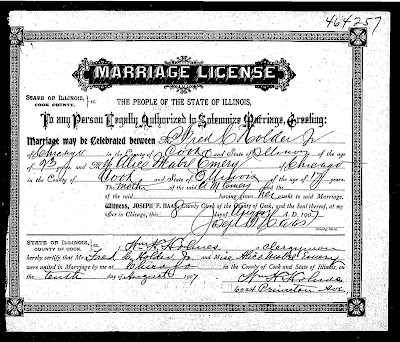 464257
MARRIAGE LICENSE
STATE OF ILLINOIS, COOK COUNTY, } ss. THE PEOPLE OF THE STATE OF ILLINOIS,
To any Person Legally Authorized to Solemnize Marriage, Greeting:
Marriage may be Celebrated between Mr Fred C Holder Jr
of Chicago in the County of Cook and State of Illinois of the age
of 23 years and M Alice Mabel Emery of Chicago
in the County of Cook and State of Illinois of the age of 17 years
The mother of the said A M Emery
of the said having given her consent to said Marriage.
Witness, JOSEPH F. HAAS, County Clerk of the County of Cook, and the Seal thereof, at my
office in Chicago, this 8 day of August A. D. 1907
Joseph F Haas
County Clerk
STATE OF ILLINOIS, COUNTY OF COOK. } ss. I, Wm K Holmes, a clergyman
hereby certify that Mr Fred C. Holder Jr and Miss Alice Mabel Emery
were united in Marriage by me at Chicago in the County of Cook and State of Illinois, on
the tenth day of August 1907
W. K. Holmes
Princeton Ave.